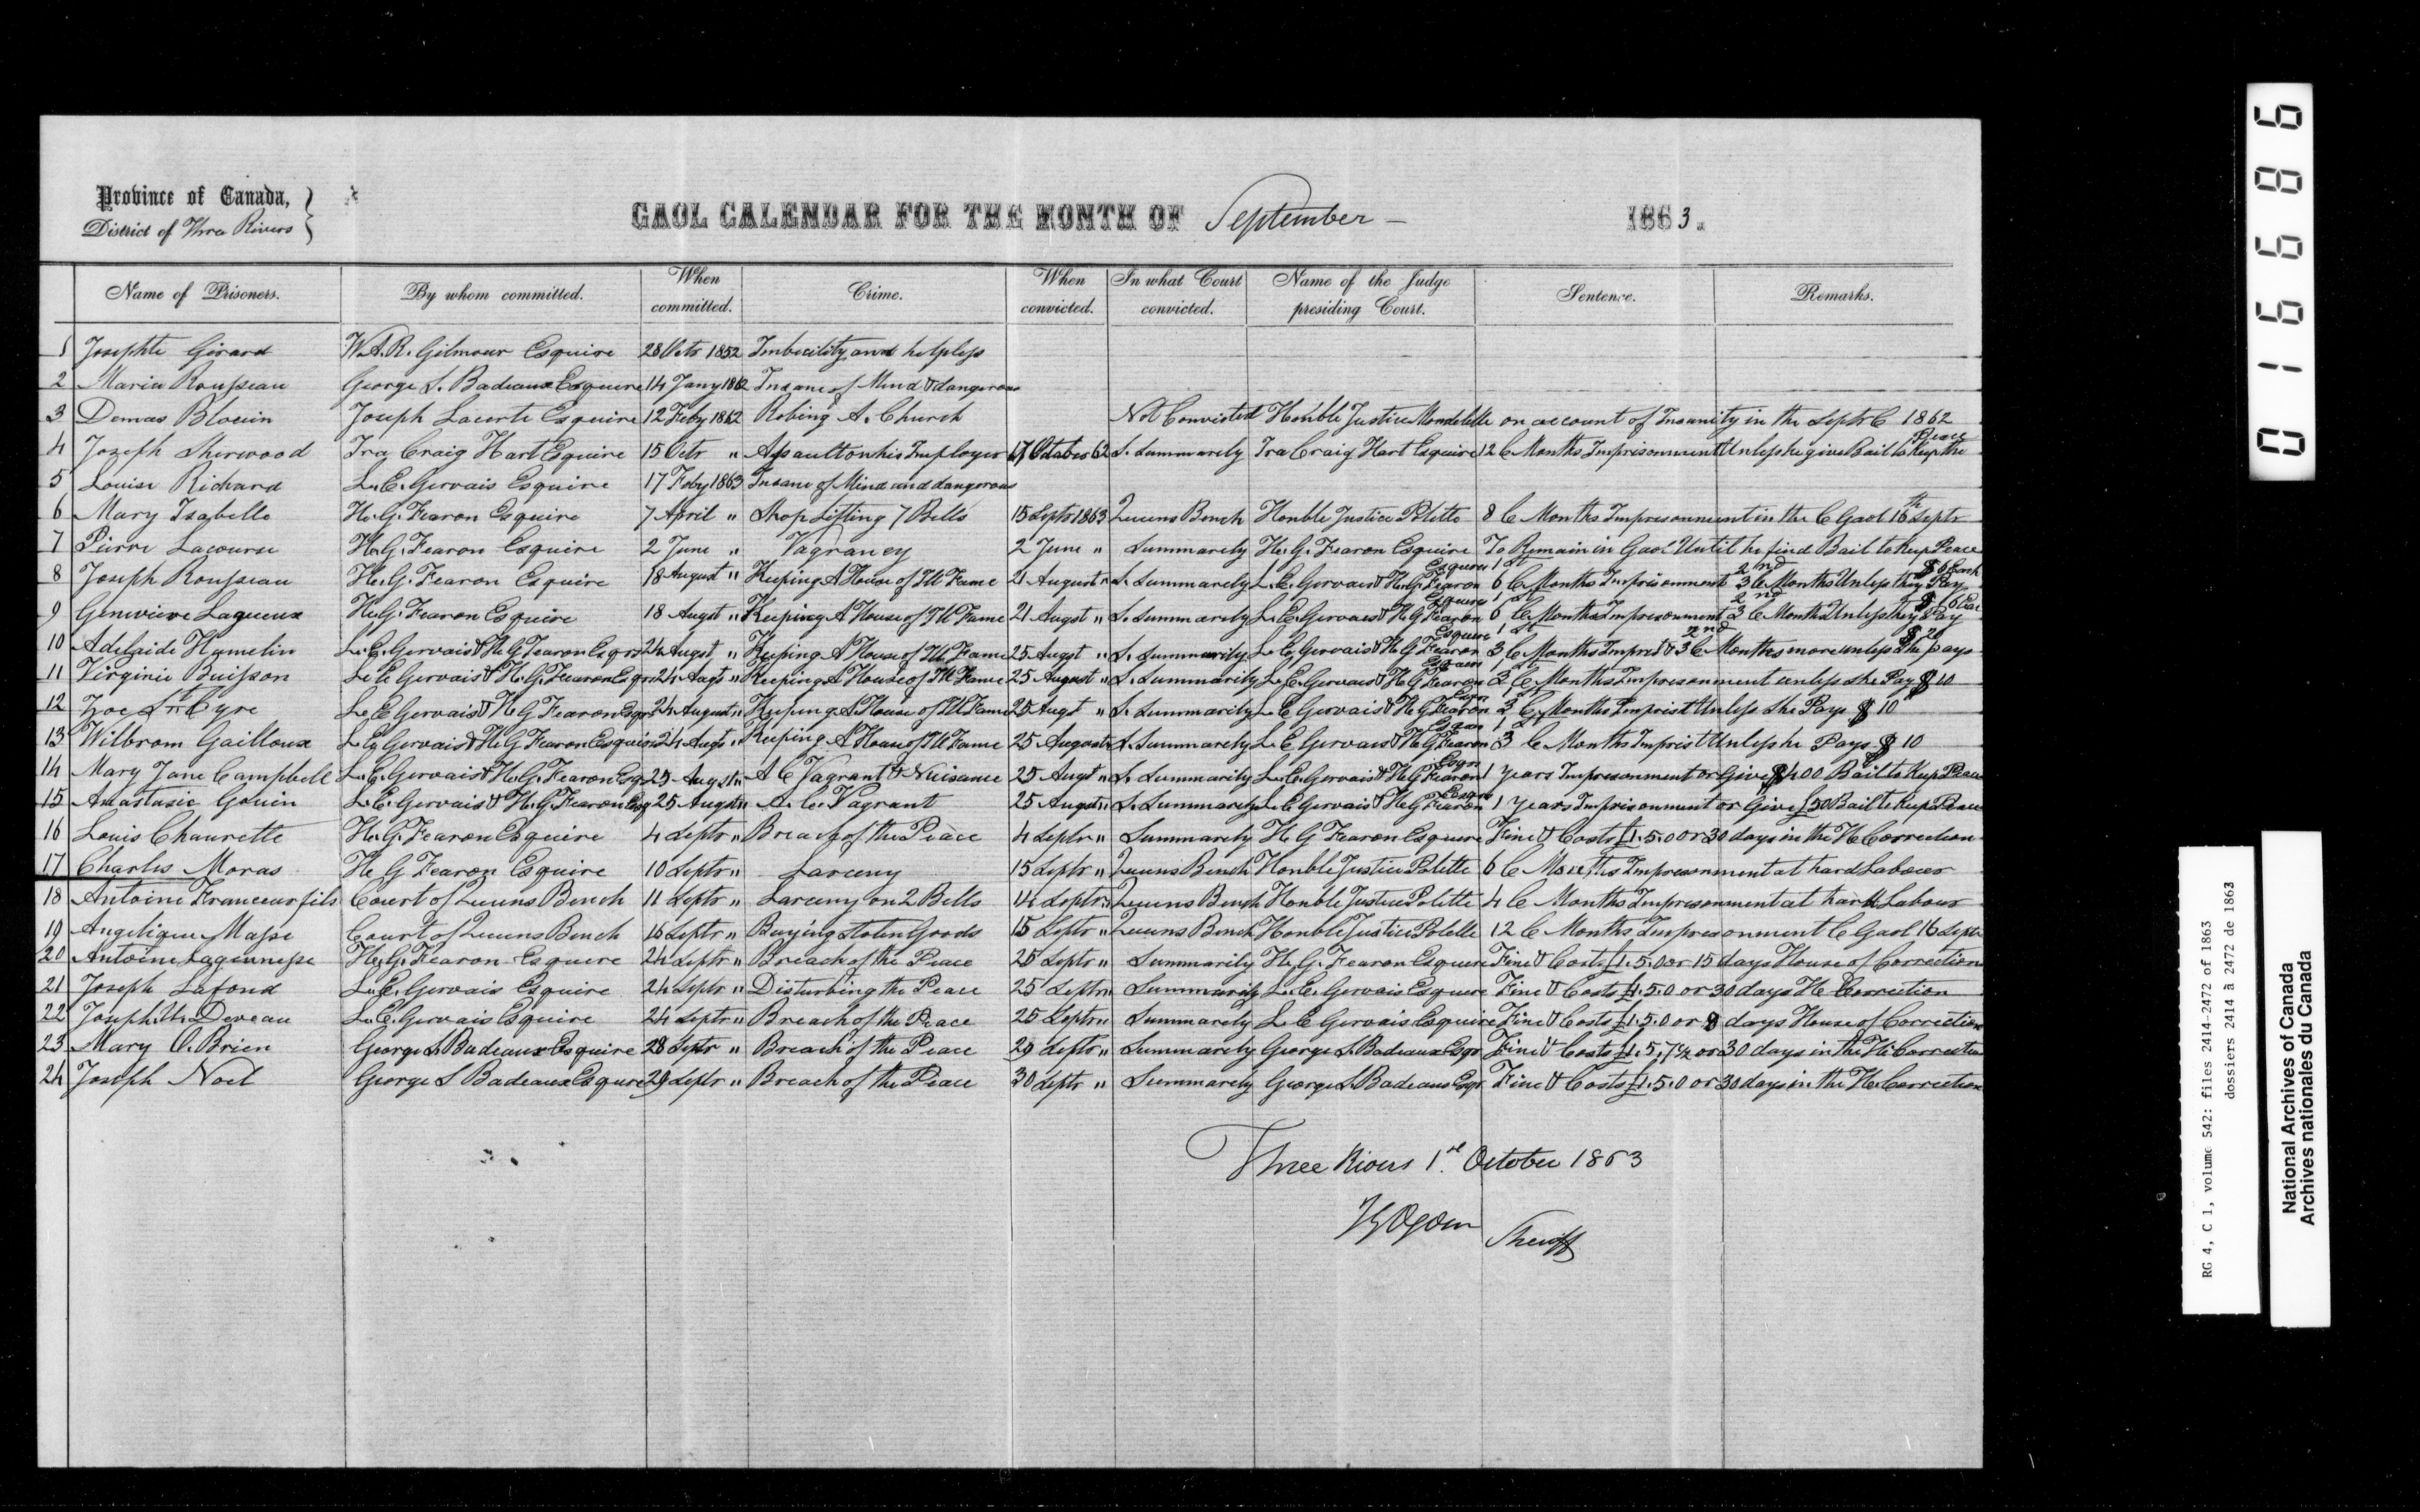 Province of Canada,
District of Three Rivers
GAOL CALENDAR FOR THE MONTH OF September 1863.
Name of Prisoners. By whom committed. When committed. Crime. When convicted. In what Court convicted. Name of the Judge presiding Court. Sentence. Remarks.
1 Josephte Girard W.A.R. Gilmour Esquire 28 Octr 1852 Imbecility and helpless
2 Maria Rousseau George S. Badeaux Esquire 14 Jany 1862 Insane of Mind & dangerous
3 Demas Blouin Joseph Lacerte Esquire 12 Feby 1862 Robing A. Church Not Convicted Honble Justice Mondelette on account of Insanity in the Septr C 1862
4 Jozeph Sherwood Ira Craig Hart Esquire 15 Octr " Assault on his Imployer 17 October 62 S. Summarely Ira Craig Hart Esquire 12 C Months Imprisonment Unless he give Bail to Keep the Peace
5 Louise Richard L. E. Gervais Esquire 17 Feby 1863 Insane of Mind and dangerous
6 Mary Isabelle H. G. Fearon Esquire 7 April " Shop Lifting 7 Bells 15 Septr 1863 Queens Bench Honble Justice Polette 8 C Months Impresonment in the C Gaol 16th Septr
7 Pierre Lacourse H. G. Fearon Esquire 2 June " Vagrancy 2 June " Summarely H. G. Fearon Esquire To Remain in Gaol Until he find Bail to Keep Peace
8 Joseph Rousseau H. G. Fearon Esquire 18 August " Keeping A House of Ill Fame 21 August " S. Summarely L. E. Gervais & H. G. Fearon Esquire 1st 6 C Months Imprisonment 2nd 3 C Months Unless they Pay $6 Each
9 Genevieve Laqueux H. G. Fearon Esquire 18 Augst " Keeping A House of Ill Fame 21 Augst " S. Summarely L. E. Gervais & H G Fearon Esquire 1st 6 C Months Impresonment 2nd 3 C Months Unless they Pay $6 Each
10 Adelaide Hamelin L. E. Gervais & H G Fearon Esqrs 24 Augst " Keeping A House of Ill Fame 25 Augst " S. Summarily L. E. Gervais & H G Fearon Esquire 1st 3 C Months Impret & 2nd 3 C Months more unless She pays $20
11 Virginie Buisson L. E Gervais & H. G. Fearon Esqrs 24 Augt " Keeping A House of Ill Fame 25 August " S. Summarily L. E. Gervais & H G Fearon Esquire 1st 3 C Months Impresonment unless she Pay $10
12 Zoe St Cyre L. E Gervais & H G Fearon Esqrs 24 August " Keeping A House of Ill Fame 25 Augt " S. Summarily L. E Gervais & H G Fearon Esqr 3 C Months Imprist Unless She Pays $10
13 Wilbrom Gailloux L. E. Gervais & H G Fearon Esquire 24 Augt " Keeping A House of Ill Fame 25 August " S. Summarely L. E Gervais & H G Fearon Esqr 1st 3 C Months Imprist Unless he Pays $10
14 Mary Jane Campbell L. E. Gervais & H. G. Fearon Esq 25 Augst " A C Vagrant & Nuisance 25 Augt " S. Summarily L. E. Gervais & H G Fearon Esqr 1 Years Impresonment or Give $400 Bail to Keep Peace
15 Anastasie Gouin L. E. Gervais & H. G Fearon Esq 25 Augst " A. C. Vagrant 25 Augst " S. Summarely L. E Gervais & H G Fearon Esqre 1 Years Imprisonment or Give £50 Bail to Keep Peace
16 Louis Chaurette H. G. Fearon Esquire 4 Septr " Breach of the Peace 4 Septr " Summarely H G Fearon Esquire Fine & Costs £1.5.0 or 30 days in the H Correction
17 Charles Moras H G Fearon Esquire 10 Septr " Larceny 15 Septr " Queens Bench Honble Justice Polette 6 C Months Impresonment at hard Labour
18 Antoine Francœur fils Court of Queens Bench 11 Septr " Larceny on 2 Bells 14 Septr " Queens Bench Honble Justice Polette 4 C Months Impresonment at hard Labour
19 Angelique Masse Court of Queens Bench 15 Septr " Buying stolen Goods 15 Septr " Queens Bench Honble Justice Polette 12 C Months Impresonment C Gaol 16 Septr
20 Antoine Lajeunesse H. G. Fearon Esquire 24 Septr " Breach of the Peace 25 Septr " Summarily H. G. Fearon Esquire Fine & Costs £1.5.0 or 15 days House of Correction
21 Joseph Lafond L. E. Gervais Esquire 24 Septr " Disturbing the Peace 25 Septr " Summarily L. E. Gervais Esquire Fine & Costs £1.5.0 or 30 days H Correction
22 Joseph Deveau L. E. Gervais Esquire 24 Septr " Breach of the Peace 25 Septr " Summarely L E Gervais Esquire Fine & Costs £1.5.0 or 8 days House of Correction
23 Mary O. Brien George S. Badeaux Esquire 28 Septr " Breach of the Peace 29 Septr " Summarely George S. Badeaux Esqr Fine & Costs £1.5.7½ or 30 days in the H. Correction
24 Joseph Noel George S Badeaux Esqure 29 Septr " Breach of the Peace 30 Septr " Summarely George S Badeaux Esqr Fine & Costs £1.5.0 or 30 days in the H. Correction
Three Rivers 1st October 1863
Ogden Sheriff
016686
RG 4, C 1, volume 542: files 2414-2472 of 1863
dossiers 2414 à 2472 de 1863
National Archives of Canada
Archives nationales du Canada